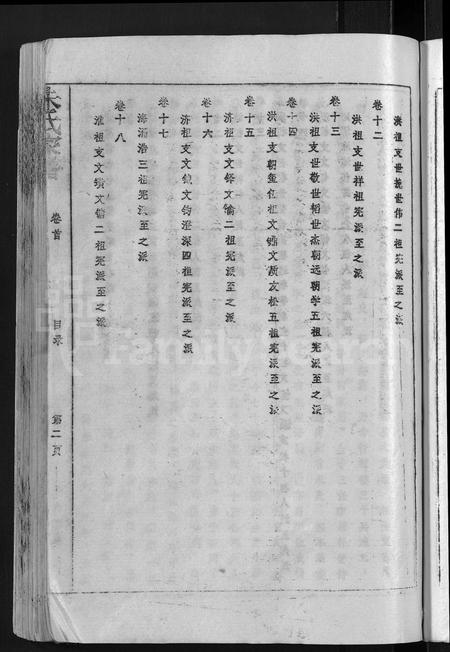 洪祖支世㫤世伟二祖宪派至之派
卷十二
洪祖支世祥祖宪派至之派
卷十三
洪祖支世敬世韬世杰朝远朝学五祖宪派至之派
卷十四
洪祖支朝 祖文 文质友松五祖宪派至之派
卷十五
济祖支文铎文 二祖宪派至之派
卷十六
济祖支文 文钧澄深四祖宪派至之派
卷十七
海涌浩三祖宪派至之派
卷十八
淮祖支文 文 二祖宪派至之派
朱氏宗
卷首
目录
第二页
FamilySearch